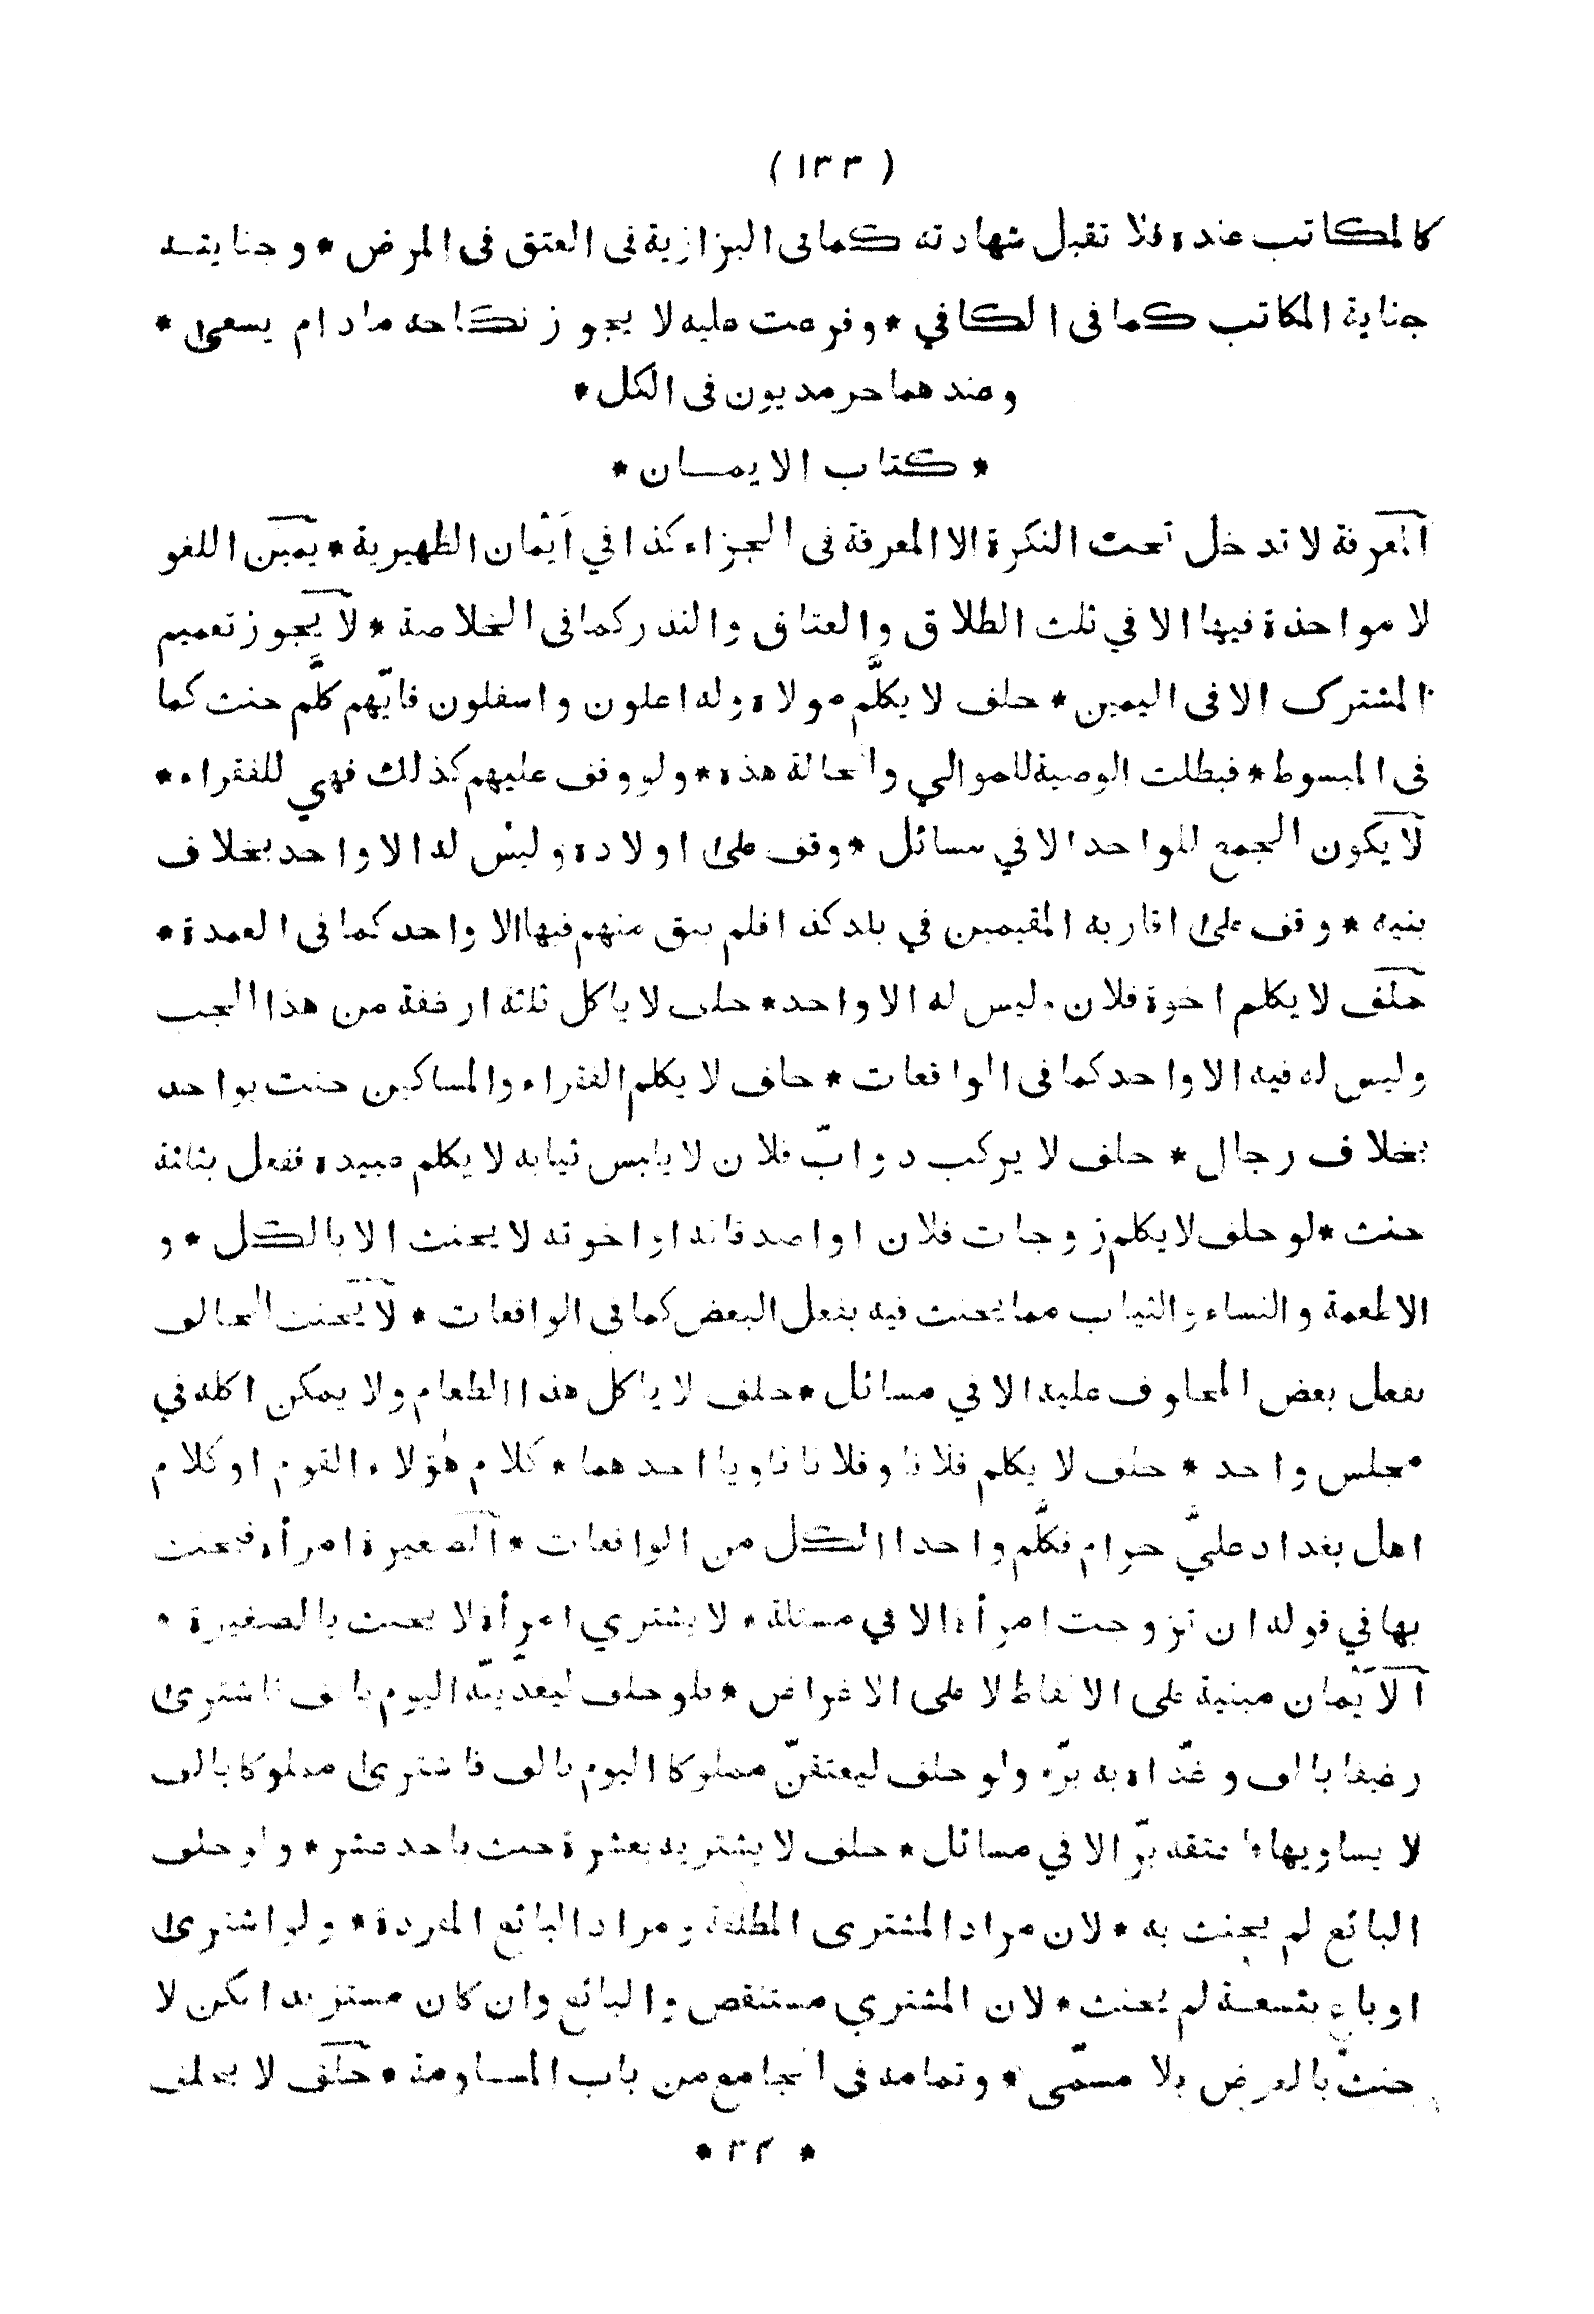 ( ١٣٣ )
كالمكاتب عنده فلا تقبل شهادته كما فى البزازية فى العتق فى المرض * و جنايتـه
جناية المكاتب كما فى الكافي * و فرعت عليه لا يجوز نكاحه مادام يسعى *
و عندهما حر مديون فى الكل *
* كتاب الايمـان *
المعرفة لا تدخل تحت النكرة الا المعرفة فى الجزاء كذا في اَيْمان الظهيرية * يمين اللغو
لا مواخذة فيها الا في ثلث الطلاق و العتاق و النذر كما فى الخلاصة * لا يجوز تعميم
المشترك الا فى اليمين * حلف لا يكلّم مولاه و له اعلون و اسفلون فايّهم كلّم حنث كما
فى المبسوط * فبطلت الوصية للموالي و الحالة هذه * و لو وقف عليهم كذلك فهي للفقراء *
لا يكون الجمع للواحد الا في مسائل * وقف على اولاده و ليس له الا واحد بخلاف
بنيه * وقف على اقاربه المقيمين في بلد كذا فلم يبق منهم فيها الا واحد كما فى العمدة *
حلف لا يكلم اخوة فلان و ليس له الا واحد * حلف لا ياكل ثلثة ارغفة من هذا الجب
و ليس له فيه الا واحد كما فى الواقعات * حلف لا يكلم الفقراء و المساكين حنث بواحد
بخلاف رجال * حلف لا يركب دوابّ فلان لا يلبس ثيابه لا يكلم عبيده ففعل بثلثة
حنث * لو حلف لا يكلم زوجات فلان او اصدقائه او اخوته لا يحنث الا بالكل * و
الاطعمة و النساء و الثياب مما يحنث فيه بفعل البعض كما فى الواقعات * لا يحنث الحالف
بفعل بعض المحلوف عليه الا في مسائل * حلف لا ياكل هذا الطعام و لا يمكن اكله في
مجلس واحد * حلف لا يكلم فلانا و فلانا ناويا احدهما * كلام هؤلاء القوم او كلام
اهل بغداد عليّ حرام فكلّم واحدا الكل من الواقعات * الصغيرة امرأة فيحنث
بها في قوله ان تزوجت امرأة الا في مسئلة * لا يشتري امرأة لا يحنث بالصغيرة *
الاَيْمان مبنية على الالفاظ لا على الاغراض * فلو حلف ليغدّينّه اليوم بالف فاشترى
رغيفا بالف و غدّاه به برّ * و لو حلف ليعتقنّ مملوكا اليوم بالف فاشترى مملوكا بالف
لا يساويها فاعتقه برّ الا في مسائل * حلف لا يشتريه بعشرة حنث باحد عشر * و لو حلف
البائع لم يحنث به * لان مراد المشترى المطلقة و مراد البائع المفردة * و لو اشترى
او باع بتسعـة لم يحنث * لان المشتري مستنقص و البائع و ان كان مستزيدا لكن لا
حنث بالعرض بلا مسمّى * و تمامه فى الجامع من باب المساومة * حلف لا يحلف
* ٣٤ *